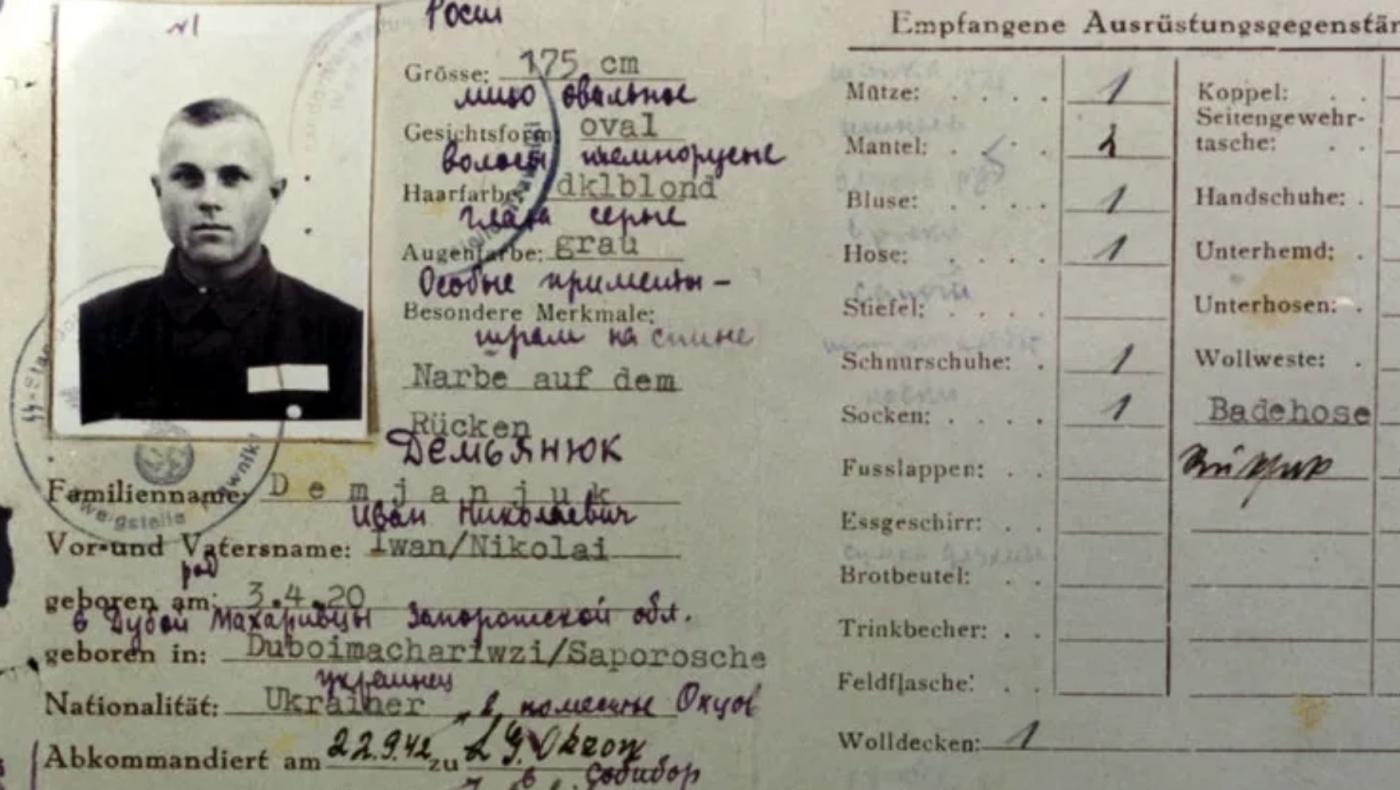 №1
Рост
Grösse: 175 cm
лицо овальное
Gesichtsform: oval
волосы темнорусые
Haarfarbe: dklblond
глаза серые
Augenfarbe: grau
Особые приметы –
Besondere Merkmale:
шрам на спине
Narbe auf dem
Rücken
Демьянюк
Familienname: Demjanjuk
Иван Николаевич
Vor-und Vatersname: Iwan/Nikolai
род
geboren am: 3.4.20
в Дубой Махаривцы Запорожской обл.
geboren in: Duboimachariwzi/Saporosche
украинец
Nationalität: Ukrainer
в поместье Окцов
Abkommandiert am 22.9.42 zu L.G. Okzow
в Собибор
Empfangene Ausrüstungsgegenstän
Mütze: . . . . 1
Mantel: . . . .
Bluse: . . . . 1
Hose: . . . . 1
Stiefel: . . . .
Schnurschuhe: . 1
Socken: . . . . 1
Fusslappen: . .
Essgeschirr: . .
Brotbeutel: . .
Trinkbecher: . .
Feldflasche: . .
Wolldecken: 1
Koppel: . .
Seitengewehr-
tasche: . .
Handschuhe: .
Unterhemd: .
Unterhosen: .
Wollweste: .
Badehose